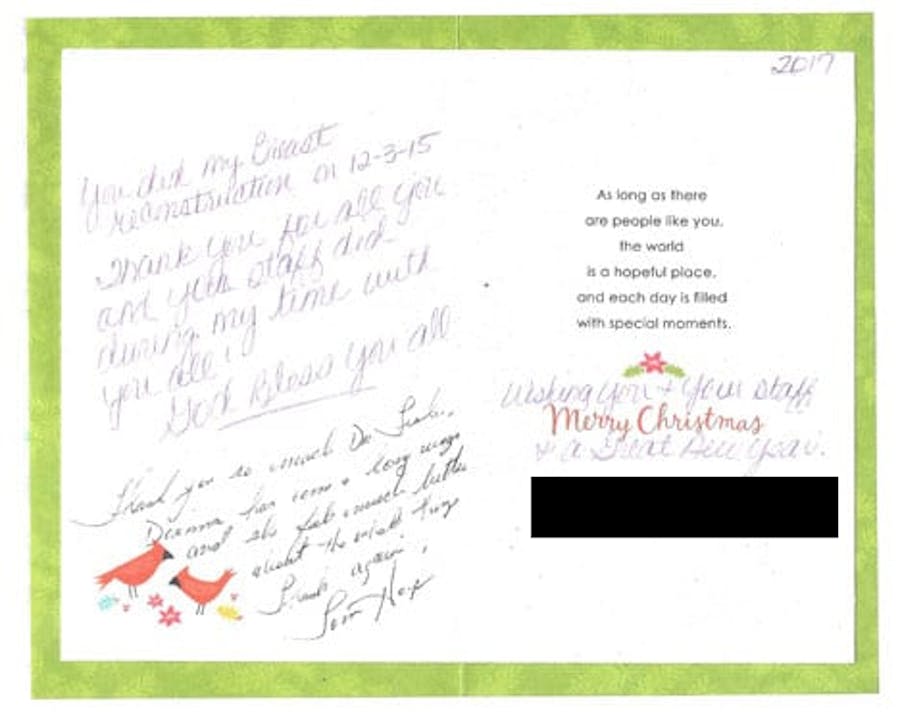 You did my Breast
reconstruction on 12-3-15
Thank you for all you
and your staff did
during my time with
you all
God Bless You all
Thank you so much Dr
Deanna has come a long ways
and she feels much better
about the whole thing
Thank again,
Tom
2017
As long as there
are people like you,
the world
is a hopeful place,
and each day is filled
with special moments.
Wishing You + Your Staff
Merry Christmas
+ a Great New Year.